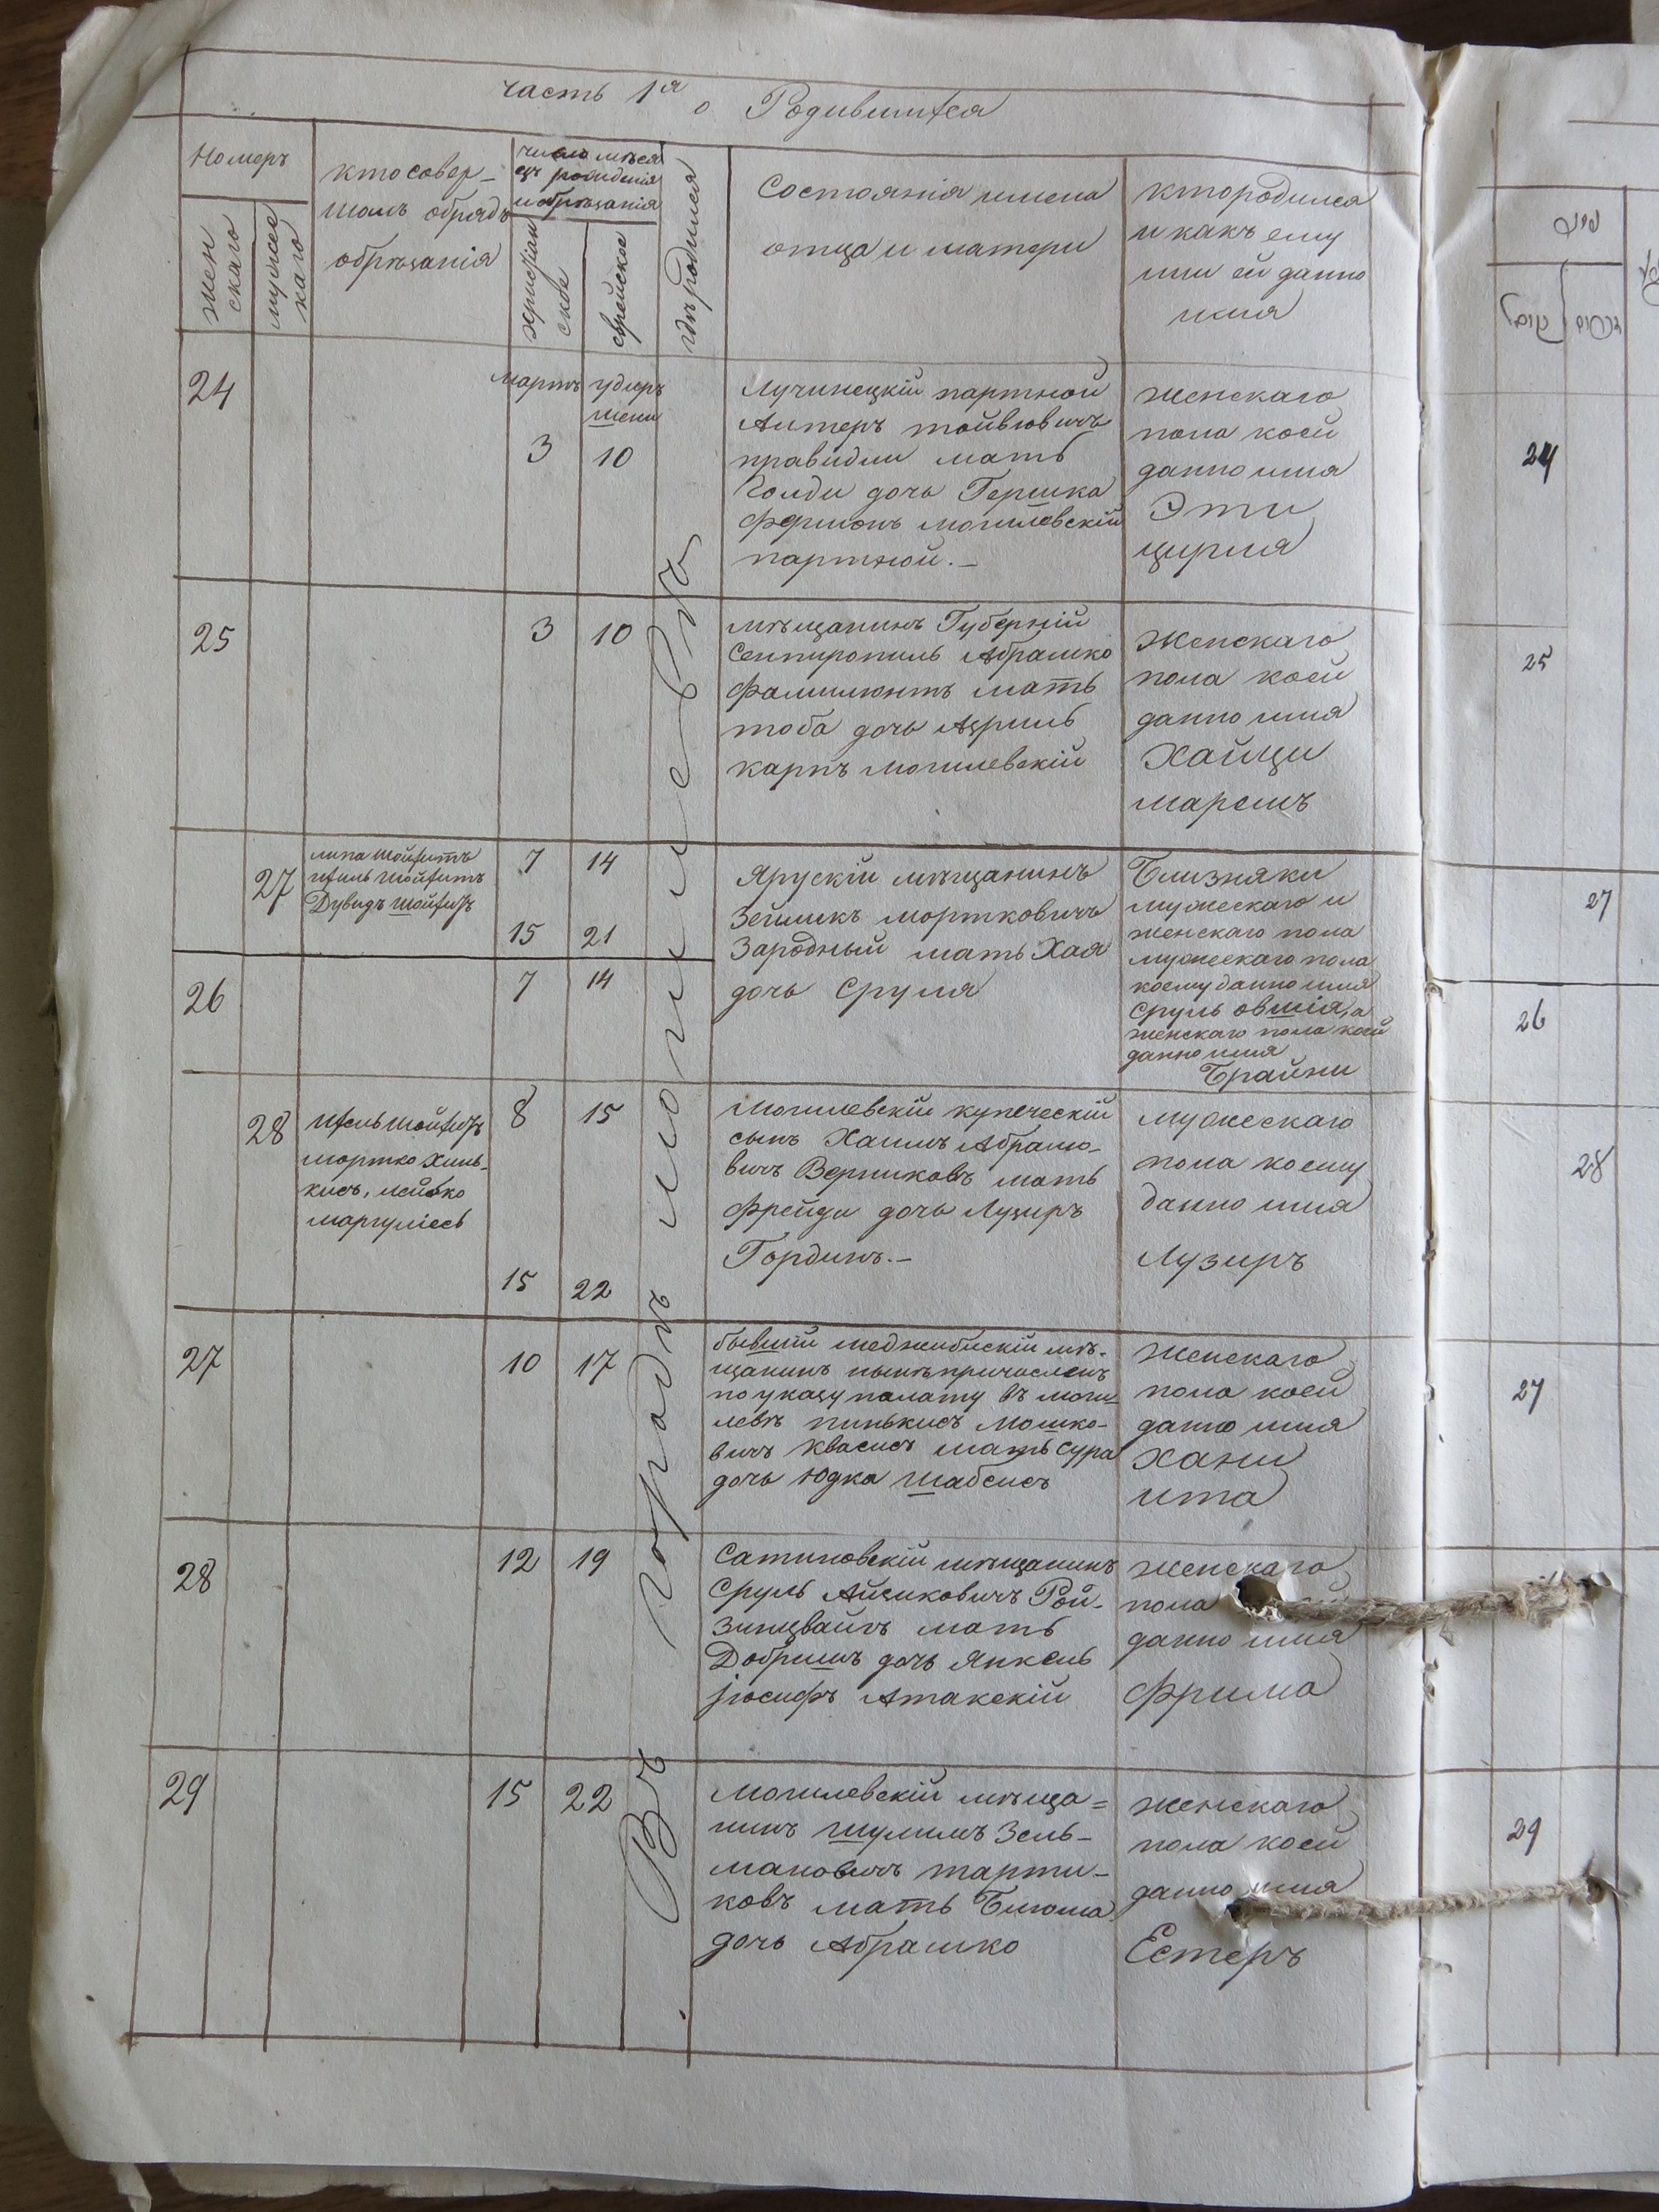 часть 1я о Родившихся
Номеръ
жен
скаго
мужес
каго
кто совер-
шалъ обрядъ
обрѣзанія
число мѣся
цъ рожденія
и обрѣзанія
христіан
ское
еврейское
гдѣ родился
Состоянія имена
отца и матери
кто родился
и какъ ему
или ей данно
имя
24
мартъ
шени
3
10
Лучинецкій партной
Алтеръ тойвіовичъ
мать
Голди дочь Гершка
могилевскій
партной.-
женскаго
пола коей
данно имя
Эти
цирля
25
3
10
мѣщанинъ Губерній
Абрамко
мать
тоба дочь
карпъ могилевскій
Женскаго
пола коей
данно имя
Хайци
маремъ
27
липа шойхитъ
ихиль шойхитъ
Дувидъ шойхитъ
7
14
15
21
26
7
14
Ярускій мѣщанинъ
Зейликъ мортковичъ
Зародный мать Хая
дочь Сруля
Близняки
мужескаго и
женскаго пола
мужескаго пола
коему данно имя
Сруль овшія, а
женскаго пола коей
данно имя
Брайни
28
ихель шойхитъ
мортко Хинь-
кисъ, лейбко
маргуліесъ
8
15
15
22
Могилевскій купеческій
сынъ Хаимъ Абрамо-
вичъ Верниковъ мать
Фрейда дочь Лузиръ
Гординъ.-
мужескаго
пола коему
данно имя
Лузиръ
27
10
17
бывшій меджибискій мѣ-
щанинъ нынѣ причисленъ
по указу палату въ моги-
левѣ пинькисъ Мошко-
вичъ Квасисъ мать Сура
дочь Юдка Шабсисъ
Женскаго
пола коей
данно имя
Хани
ита
28
12
19
Сатановскій мѣщанинъ
Сруль Айзиковичъ Рой-
зинцвайгъ мать
Добришъ дочь Янкель
Іосифъ Атакскій
Женскаго
пола
данно имя
Фрима
29
15
22
Могилевскій мѣща=
нинъ шулимъ Зель-
мановичъ тарти-
ковъ мать Блюма
дочь Абрамко
женскаго
пола коей
данно имя
Естеръ
Въ городѣ могилевѣ
24
25
27
26
28
27
29